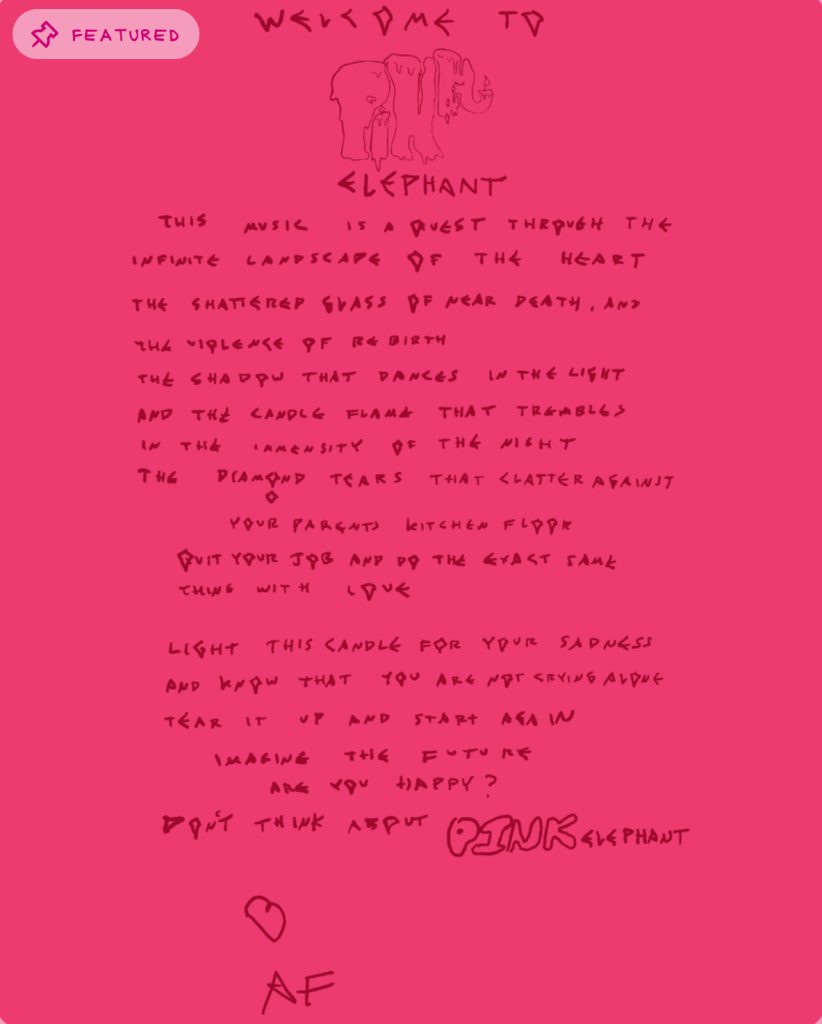 FEATURED
WELCOME TO
PINK
ELEPHANT
THIS MUSIC IS A QUEST THROUGH THE
INFINITE LANDSCAPE OF THE HEART
THE SHATTERED GLASS OF NEAR DEATH, AND
THE VIOLENCE OF REBIRTH
THE SHADOW THAT DANCES IN THE LIGHT
AND THE CANDLE FLAME THAT TREMBLES
IN THE IMMENSITY OF THE NIGHT
THE DIAMOND TEARS THAT CLATTER AGAINST
YOUR PARENTS KITCHEN FLOOR
QUIT YOUR JOB AND DO THE EXACT SAME
THING WITH LOVE
LIGHT THIS CANDLE FOR YOUR SADNESS
AND KNOW THAT YOU ARE NOT CRYING ALONE
TEAR IT UP AND START AGAIN
IMAGINE THE FUTURE
ARE YOU HAPPY?
DON'T THINK ABOUT PINK ELEPHANT
AF